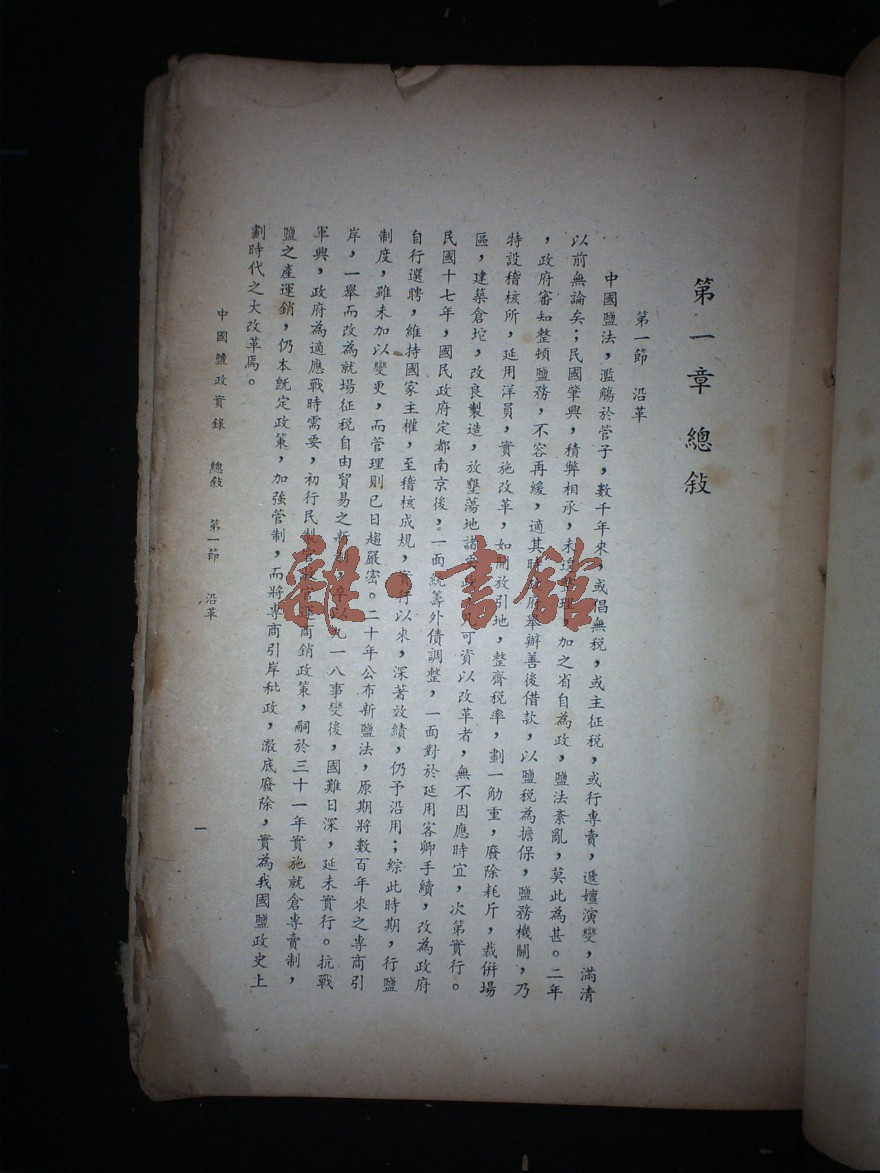 第一章 總敍
第一節 沿革
中國鹽法，濫觴於管子，數千年來，或倡無税，或主征税，或行專賣，遞嬗演變，滿清
以前無論矣；民國肇興，積弊相承，未遑整理，加之省自為政，鹽法紊亂，莫此為甚。二年
，政府審知整頓鹽務，不容再緩，適其時政府舉辦善後借款，以鹽税為擔保，鹽務機關，乃
特設稽核所，延用洋員，實施改革，如開放引地，整齊税率，劃一觔重，廢除耗斤，裁併場
區，建築倉坨，改良製造，放墾蕩地諸要政，凡可資以改革者，無不因應時宜，次第實行。
民國十七年，國民政府定都南京後，一面統籌外債調整，一面對於延用客卿手續，改為政府
自行選聘，維持國家主權，至稽核成規，實行以來，深著效績，仍予沿用；綜此時期，行鹽
制度，雖未加以變更，而管理則已日趨嚴密。二十年公布新鹽法，原期將數百年來之專商引
岸，一舉而改為就場征税自由貿易之新制，卒以九一八事變後，國難日深，延未實行。抗戰
軍興，政府為適應戰時需要，初行民製官收官運商銷政策，嗣於三十一年實施就倉專賣制，
鹽之產運銷，仍本旣定政策，加強管制，而將專商引岸秕政，澈底廢除，實為我國鹽政史上
劃時代之大改革焉。
中國鹽政實錄 總敍 第一節 沿革
一
雜·書館